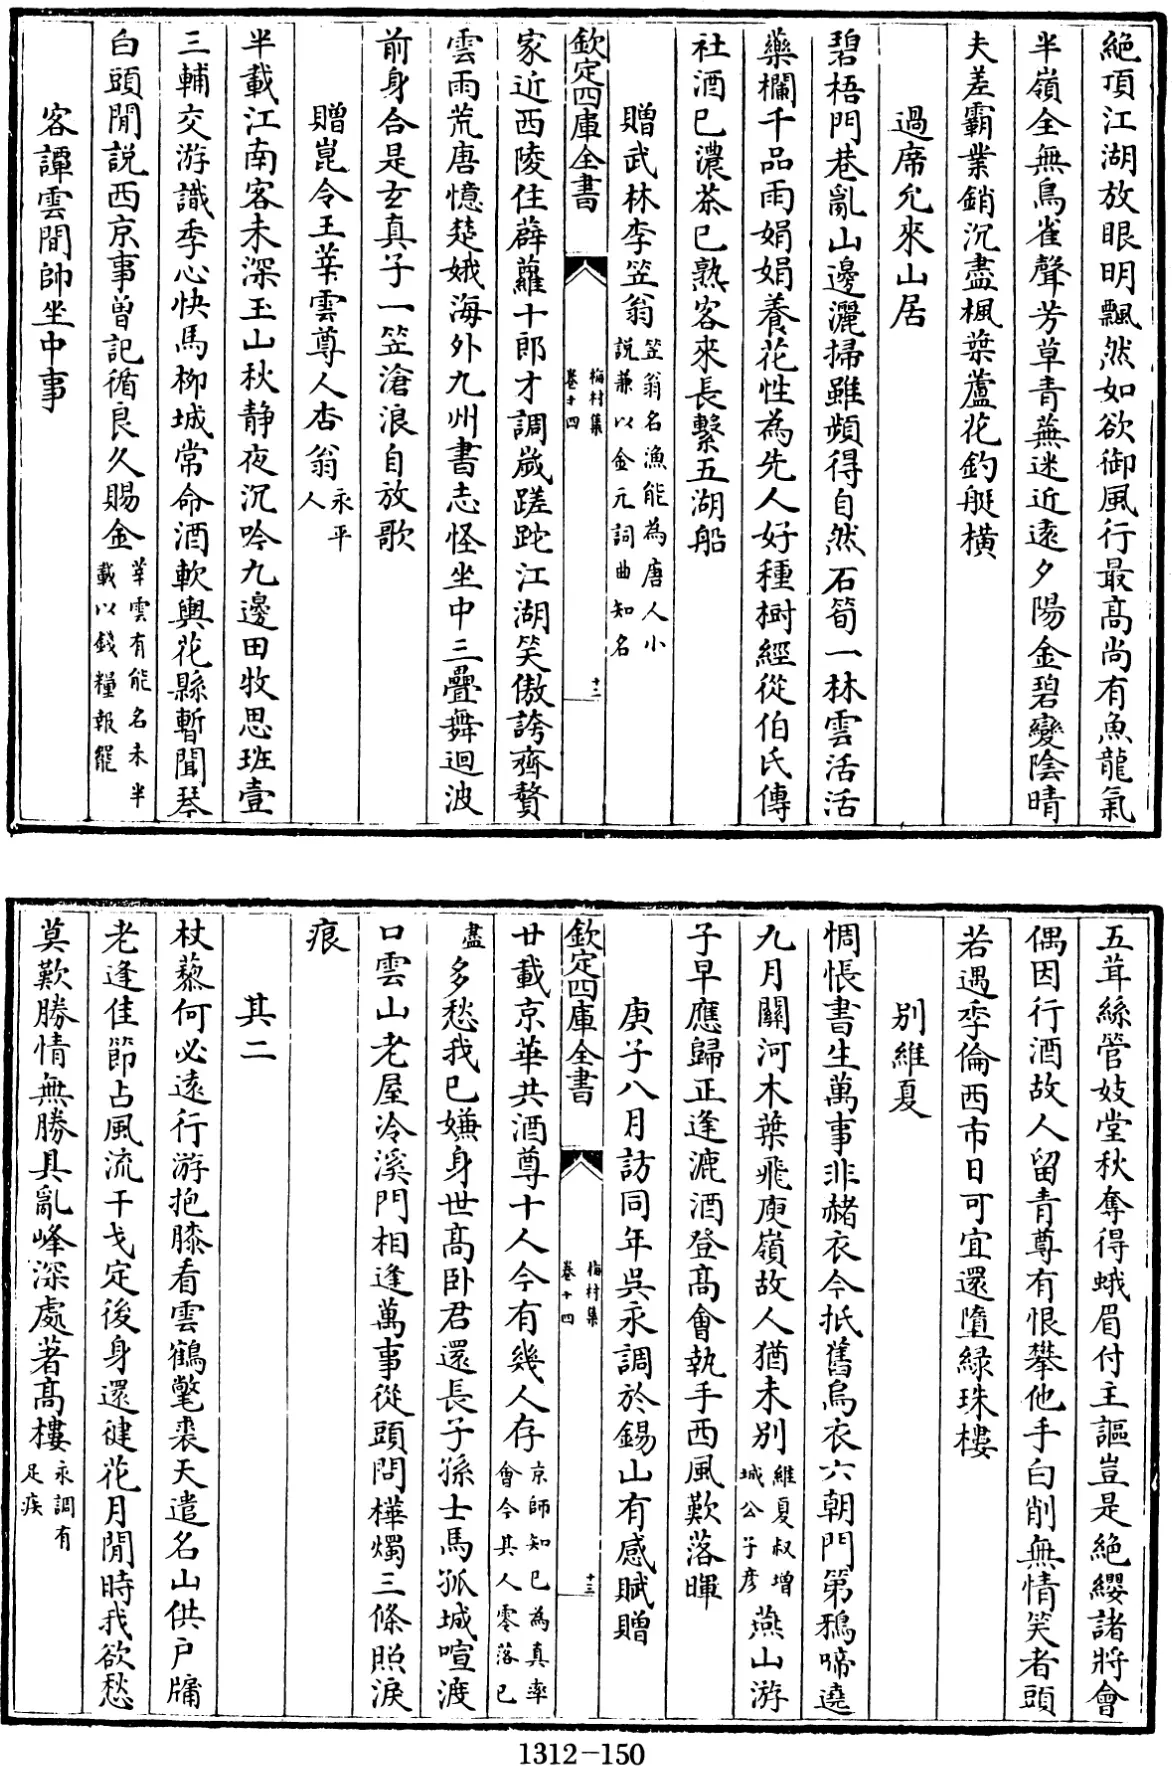 絶頂江湖放眼明飄然如欲御風行最高尚有魚龍氣
半嶺全無鳥雀聲芳草青蕪迷近遠夕陽金碧變陰晴
夫差霸業銷沉盡楓葉蘆花釣艇橫
過席允來山居
碧梧門巷亂山邊灑掃雖頻得自然石筍一林雲活活
藥欄千品雨娟娟養花性為先人好種樹經從伯氏傳
社酒已濃茶已熟客來長繫五湖船
贈武林李笠翁笠翁名漁能為唐人小說兼以金元詞曲知名
欽定四庫全書 梅村集 卷十四 十二
家近西陵住薜蘿十郎才調歲蹉跎江湖笑傲誇齊贅
雲雨荒唐憶楚娥海外九州書志怪坐中三疊舞迴波
前身合是玄真子一笠滄浪自放歌
贈崑令王莘雲尊人杏翁永平人
半載江南客未深玉山秋静夜沉吟九邊田牧思班壹
三輔交游識季心快馬柳城常命酒軟輿花縣暫聞琴
白頭閒說西京事曾記循良久賜金莘雲有能名未半載以錢糧報罷
客譚雲間帥坐中事
五茸絲管妓堂秋奪得蛾眉付主謳豈是絶纓諸將會
偶因行酒故人留青尊有恨攀他手白削無情笑者頭
若遇季倫西市日可宜還墮綠珠樓
別維夏
惆悵書生萬事非赭衣今抵舊烏衣六朝門第鴉啼遶
九月關河木葉飛庾嶺故人猶未別維夏叔增城公子彦燕山游
子早應歸正逢漉酒登髙會執手西風歎落暉
庚子八月訪同年吳永調於錫山有感賦贈
欽定四庫全書 梅村集 卷十四 十三
廿載京華共酒尊十人今有幾人存京師知已為真率會今其人零落已
盡多愁我已嫌身世髙卧君還長子孫士馬孤城喧渡
口雲山老屋冷溪門相逢萬事從頭問樺燭三條照淚
痕
其二
杖藜何必遠行游抱膝看雲鶴氅裘天遣名山供户牖
老逢佳節占風流干戈定後身還健花月閒時我欲愁
莫歎勝情無勝具亂峰深處著髙樓永調有足疾
1312-150